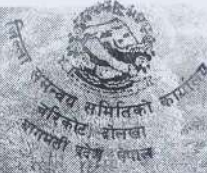 जिल्ला समन्वय समितिको कार्यालय
चरिकोट, दोलखा
बागमती प्रदेश, नेपाल